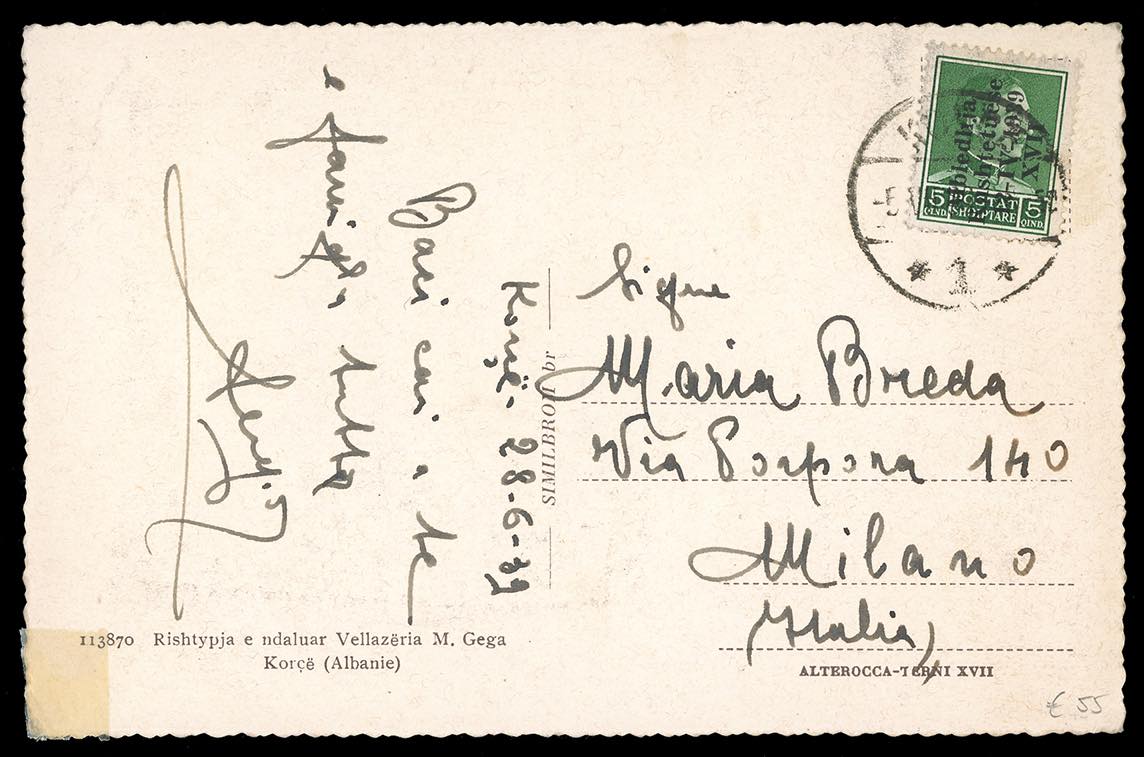 Korçë. 28-6-39
Baci cari a te
e famiglia tutta
Signa
Maria Breda
Via Porpora 140
Milano
(Italia)
5 POSTAT 5
QIND. SHQIPTARE QIND.
Mbledhja
Kushtetuese
12-IV-1939
XVII
* 1 *
SIMILBROM br
113870 Rishtypja e ndaluar Vellazëria M. Gega
Korçë (Albanie)
ALTEROCCA-TERNI XVII
€ 55